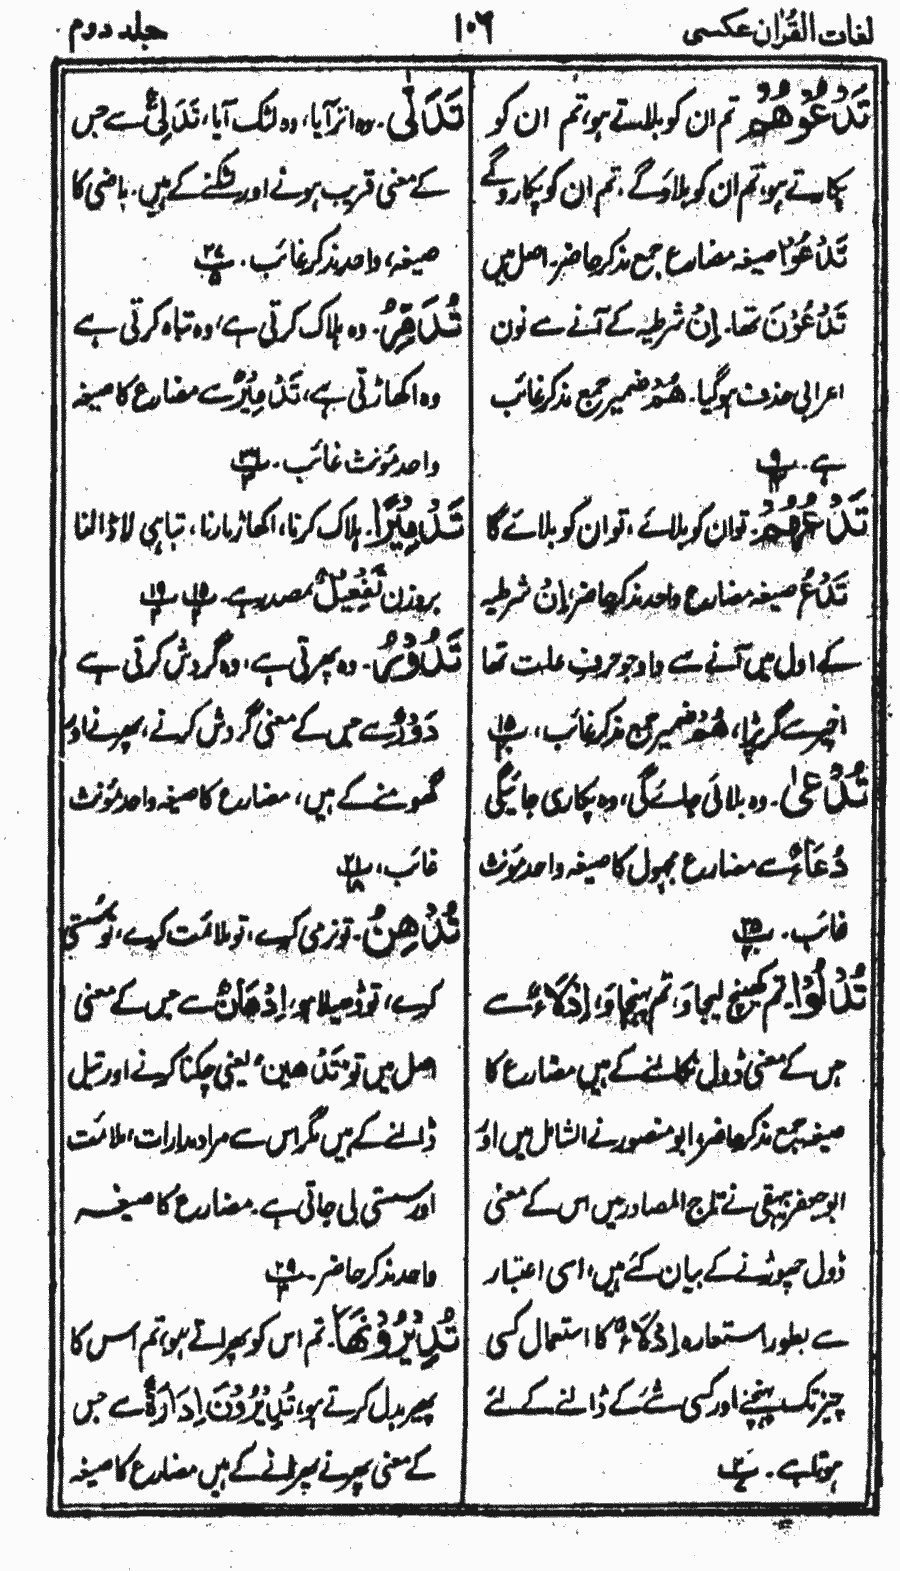 لغات القرآن عکسی
۱۰۶
جلد دوم
تَدْعُوْهُمْ تم ان کو بلاتے ہو، تم ان کو
پکارتے ہو، تم ان کو بلاؤگے، تم ان کو پکاروگے
تَدْعُوْا صیغہ مضارع جمع مذکر حاضر، اصل میں
تَدْعُوْنَ تھا۔ اِنْ شرطیہ کے آنے سے نون
اعرابی حذف ہوگیا۔ هُمْ ضمیر جمع مذکر غائب
ہے۔
تَدْعُهُمْ۔ تو ان کو بلائے، تو ان کو بلائے گا
تَدْعُ صیغہ مضارع واحد مذکر حاضر، اِنْ شرطیہ
کے اول میں آنے سے واو جو حرف علت تھا
اخیر سے گر پڑا، هُمْ ضمیر جمع مذکر غائب،
تُدْعٰی۔ وہ بلائی جائے گی، وہ پکاری جائیگی
دُعَاءٌ سے مضارع مجہول کا صیغہ واحد مؤنث
غائب۔
تُدْلُوْا۔ تم کھینچ لیجاؤ، تم پہنچاؤ، اِدْلَاءٌ سے
جس کے معنی ڈول نکالنے کے ہیں مضارع کا
صیغہ جمع مذکر حاضر، ابو منصور نے الشامل میں اور
ابو جعفر بیہقی نے تاج المصادر میں اس کے معنی
ڈول چھوڑنے کے بیان کئے ہیں، اسی اعتبار
سے بطور استعارہ اِدْلَاءٌ کا استعمال کسی
چیز تک پہنچنے اور کسی شئے کے ڈالنے کے لئے
ہوتا ہے۔
تَدَلّٰی۔ وہ اتر آیا، وہ لٹک آیا، تَدَلِّیٌ سے جس
کے معنی قریب ہونے اور لٹکنے کے ہیں۔ ماضی کا
صیغہ، واحد مذکر غائب۔ ۲۷ ۵
تُدَمِّرُ۔ وہ ہلاک کرتی ہے، وہ تباہ کرتی ہے
وہ اکھاڑتی ہے، تَدْمِیْرٌ سے مضارع کا صیغہ
واحد مؤنث غائب۔
تَدْمِیْرًا۔ ہلاک کرنا، اکھاڑ مارنا، تباہی لا ڈالنا
بروزن تَفْعِیْلٌ مصدر ہے۔ ۱۵ ۲ ۱۹ ۲
تَدُوْرُ۔ وہ پھرتی ہے، وہ گردش کرتی ہے
دَوْرٌ سے جس کے معنی گردش کرنے، پھرنے اور
گھومنے کے ہیں، مضارع کا صیغہ واحد مؤنث
غائب، ۲۱ ۱۸
تُدْهِنُ۔ تو نرمی کرے، تو ملائمت کرے، تو سستی
کرے، تو ڈھیلا ہو، اِدْهَانٌ سے جس کے معنی
اصل میں تو تَدْهین، یعنی چکنا کرنے اور تیل
ڈالنے کے ہیں مگر اس سے مراد مدارات، ملائمت
اور سستی لی جاتی ہے۔ مضارع کا صیغہ
واحد مذکر حاضر۔ ۲۹ ۳
تُدِیْرُوْنَهَا۔ تم اس کو پھراتے ہو، تم اس کا
پھیر بدل کرتے ہو، تُدِیْرُوْنَ اِدَارَةٌ سے جس
کے معنی پھرنے پھرانے کے ہیں مضارع کا صیغہ